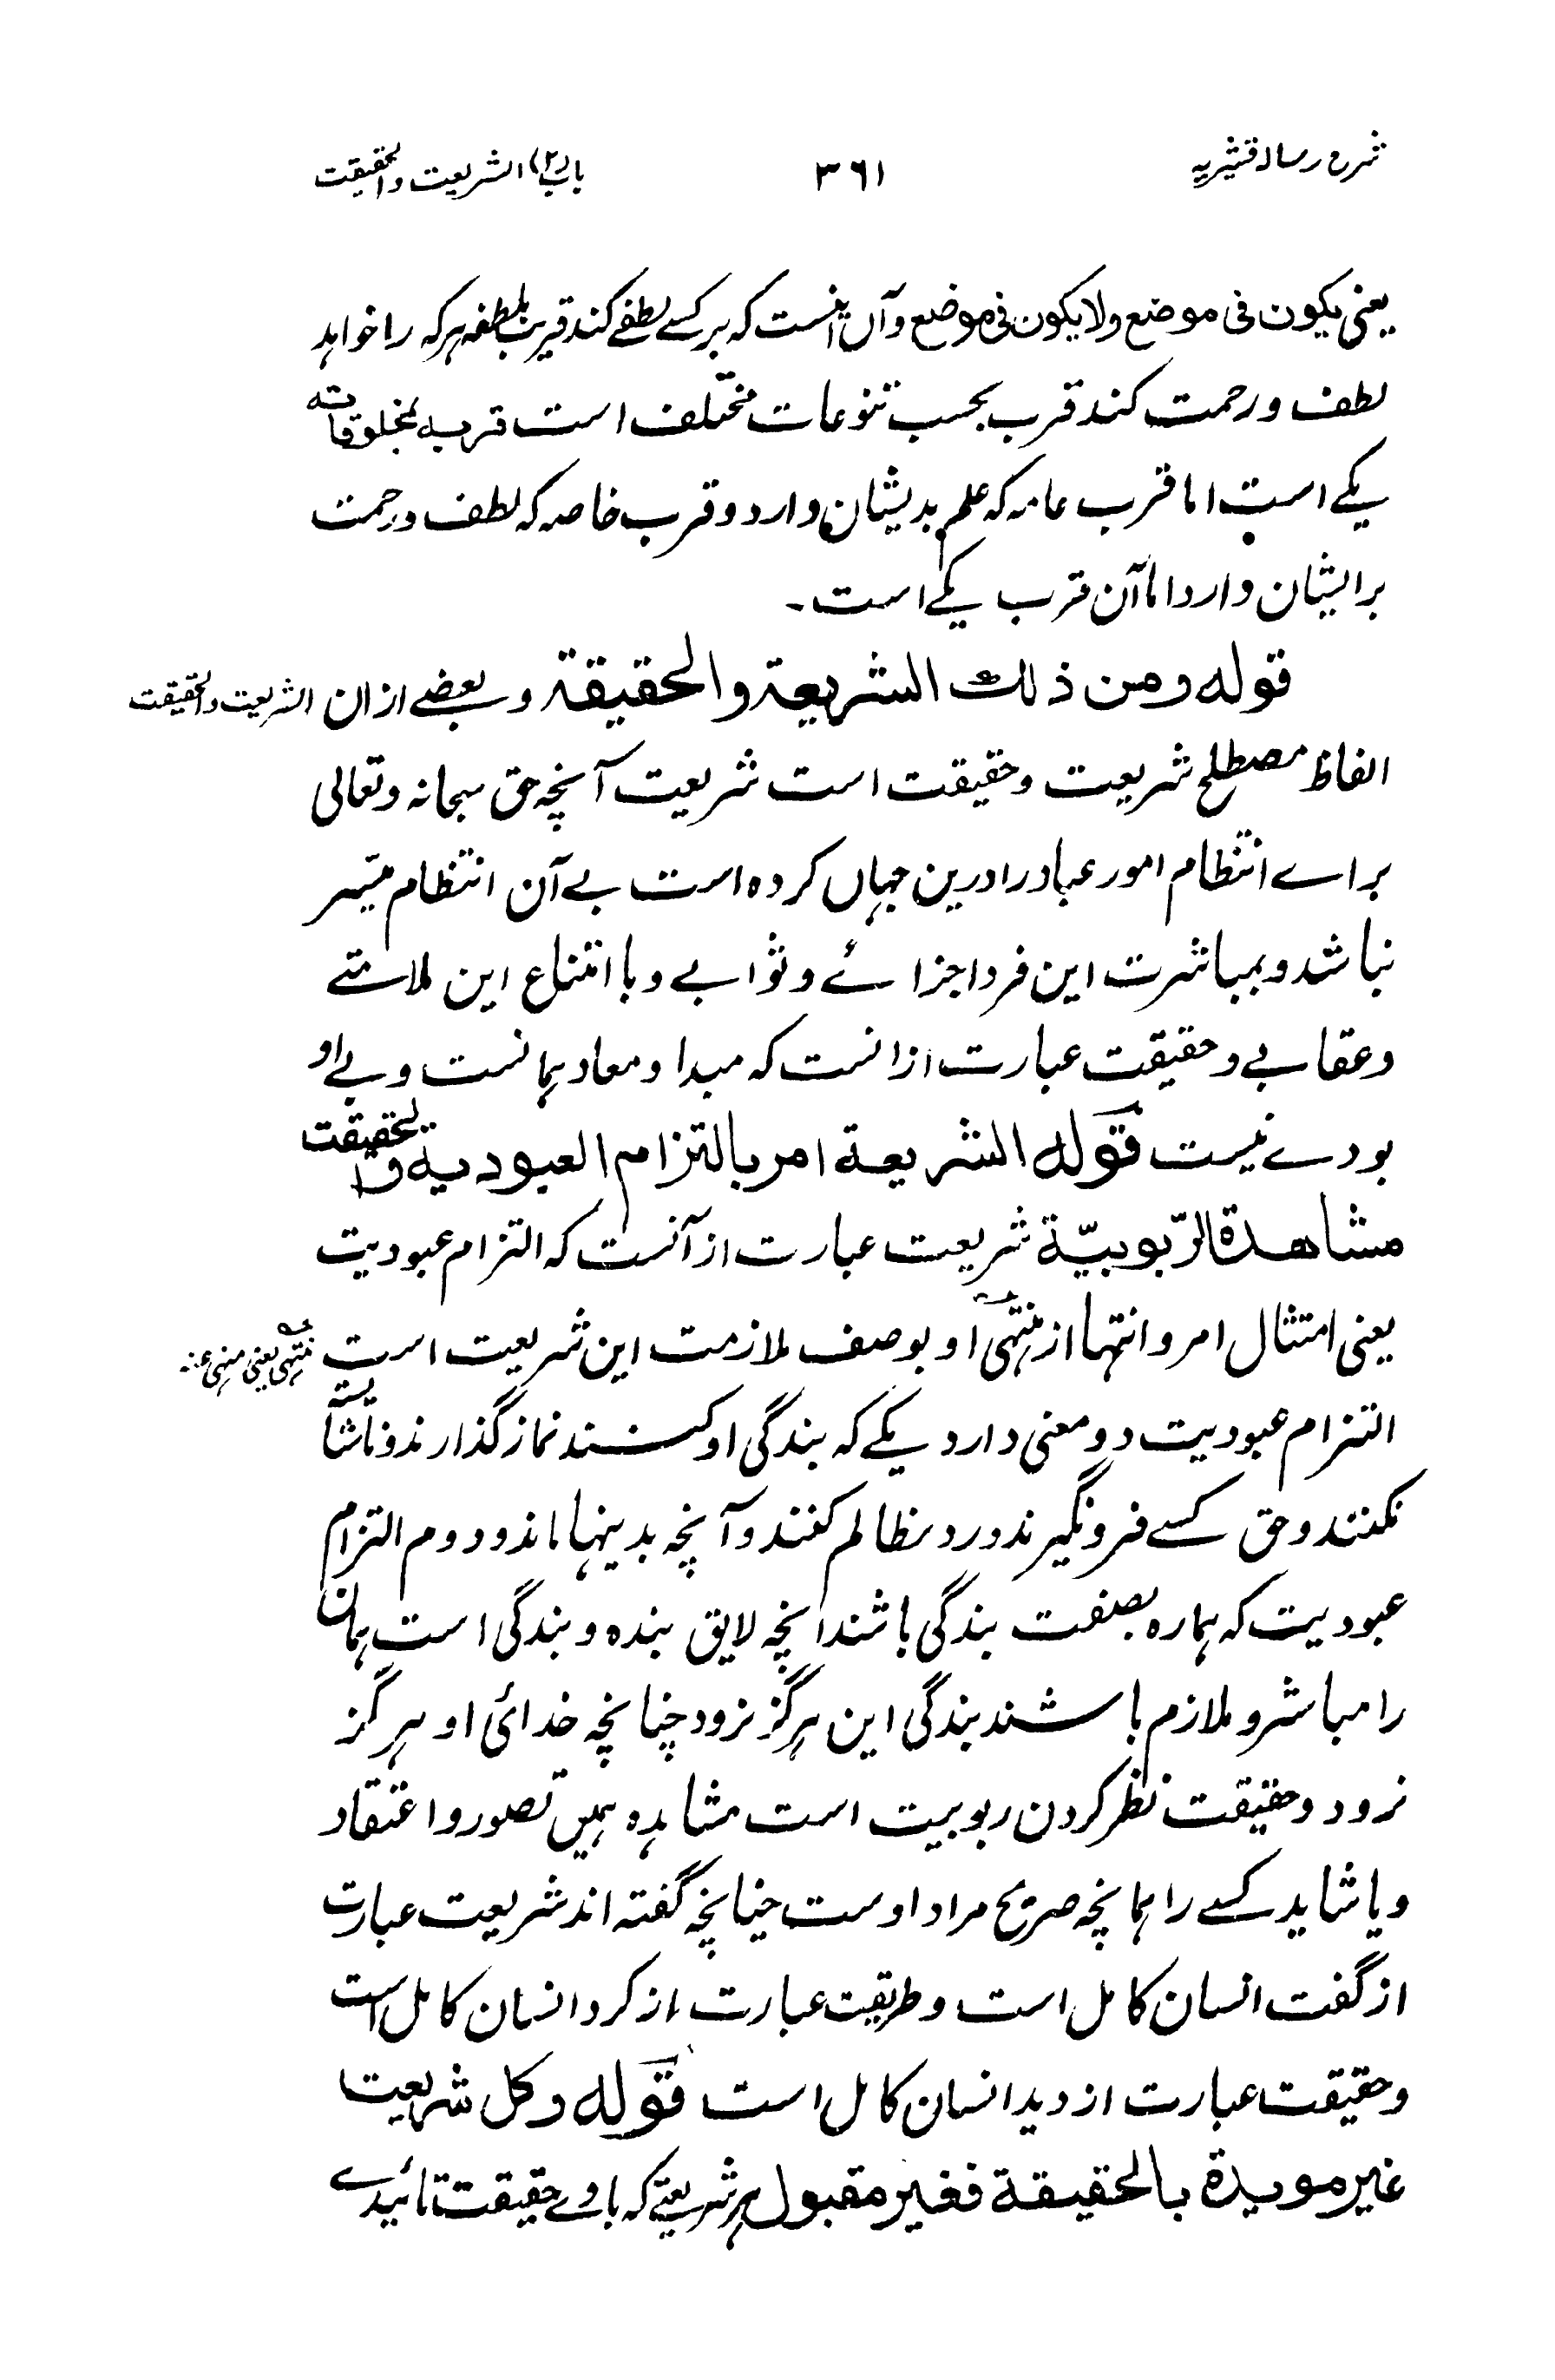 شرح رسالہ قشیریہ
۳۶۱
باب (۲) الشریعت والحقیقت
یعنی یکون فی موضع ولا یکون فی موضع وآں اینست کہ بر کسے لطفے کند قریب بلطفہ ہر کہ را خواہد
لطف و رحمت کند قرب بحسب تنوعات مختلف است قربہ بمخلوقاتہ
یکے است اما قرب عامہ کہ علم بدیشان وارد و قرب خاصہ کہ لطف و رحمت
بر ایشان وارد اما آن قرب یکے است۔
قولہ ومن ذلک الشریعۃ والحقیقۃ و بعضے از ان
الشریعت والحقیقت
الفاظ مصطلح شریعت وحقیقت است شریعت آنچہ حق سبحانہ وتعالی
براے انتظام امور عباد را درین جہاں کردہ است بے آن انتظام میّسر
نباشد و بمباشرت این فردا جزائے و ثوابے و با امتناع این ملامتے
وعقابے و حقیقت عبارت ازانست کہ مبدا و معاد ہمانست و بے او
بودے نیست قولہ الشریعۃ امر بالتزام العبودیۃ والحقیقت
مشاھدۃ الرّبوبیّۃ شریعت عبارت از آنست کہ التزام عبودیت
یعنی امتثال امر و انتہا از منتہیٰ او بوصف ملازمت این شریعت است
منتہی یعنی منہی عنہ
التزام عبودیت دو معنی دارد یکے کہ بندگی او کنند نماز گذارند و ناشایستہ
نکنند وحق کسے فرو نگیرند و رد مظالم کنند و آنچہ بدینہا ماند و دوم التزام
عبودیت کہ ہمارہ بصفت بندگی باشند انچہ لایق بندہ و بندگی است ہمان
را مباشر و ملازم باشند بندگی این ہرگز نرود چنانچہ خدائی او ہرگز
نرود و حقیقت نظر کردن ربوبیت است مشاہدہ ہمیں تصور و اعتقاد
و یا شاید کسے را ہمانچہ صریح مراد اوست چنانچہ گفتہ اند شریعت عبارت
از گفت انسان کامل است و طریقت عبارت از کرد انسان کامل است
و حقیقت عبارت از دید انسان کامل است قولہ وکل شریعت
غیر مویدۃ بالحقیقۃ فغیر مقبول ہر شریعتے کہ باوے حقیقت تائیدے